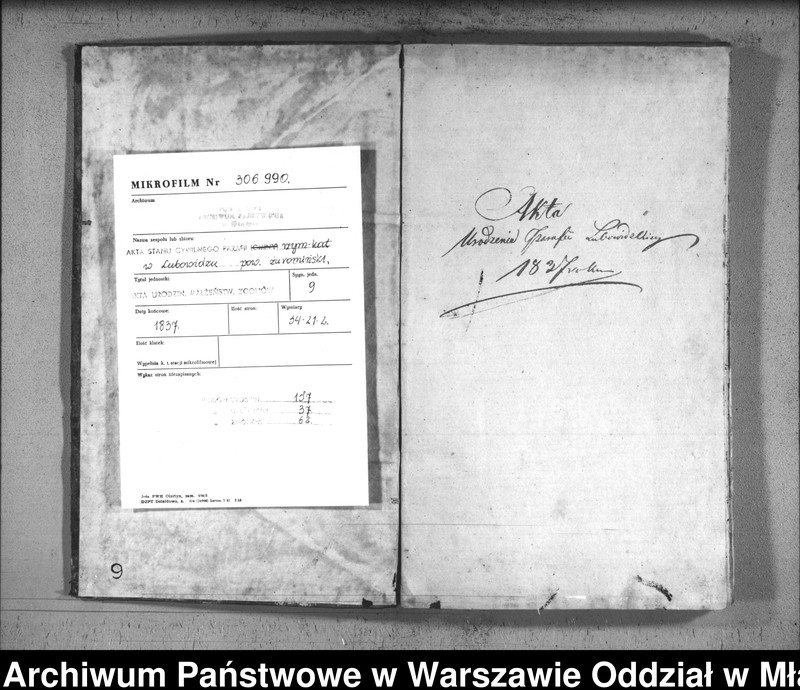 MIKROFILM Nr 306 990.
Archiwum
ARCHIWUM
Nazwa zespołu lub zbioru
AKTA STANU CYWILNEGO PARAFII rzym-kat
w Lubowidzu pow. żuromiński,
Tytuł jednostki:
Sygn. jedn.
AKTA URODZIN, MAŁŻEŃSTW, ZGONÓW
9
Daty końcowe:
Ilość stron:
Wymiary
1837.
34-21-2.
Ilość klatek:
Wypełnia k. t. stacji mikrofilmowej
Wykaz stron niezapisanych:
157
37
62
9
Akta
Urodzenia Parafii Lubowidzkiey
1837 roku
Archiwum Państwowe w Warszawie Oddział w Mła